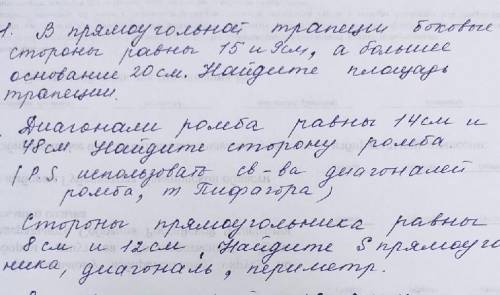 1. В прямоугольной трапеции боковые
стороны равны 15 и 9см, а большее
основание 20см. Найдите площадь
трапеции.
Диагонали ромба равны 14см и
48см. Найдите сторону ромба
(P.S. использовать св-ва диагоналей
ромба, т Пифагора)
Стороны прямоугольника равны
8см и 12см. Найдите S прямоуго
ника, диагональ, периметр.